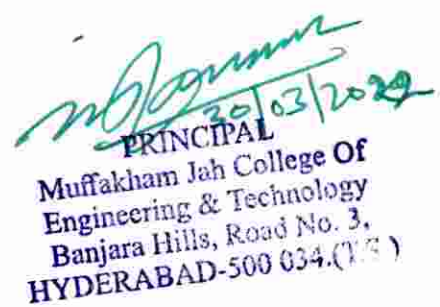 30/03/2022
PRINCIPAL
Muffakham Jah College Of
Engineering & Technology
Banjara Hills, Road No. 3,
HYDERABAD-500 034.(T.S)